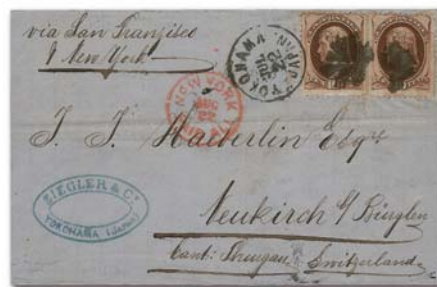 via San Franzisco
& New York
YOKOHAMA JAPAN
JUL
NEW YORK
AUG
22
J. J. Haeberlin Esqre
ZIEGLER & Co
YOKOHAMA (JAPAN)
Neukirch b/ Bürglen
Cant: Thurgau Switzerland